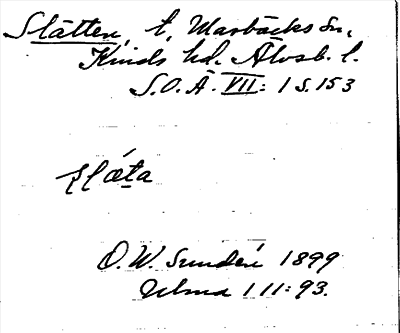 Slätten, t, Marbäcks sn,
Kinds hd. Älvsb. l.
S.O.Ä. VII: 1 s. 153
slǽta
O. W. Sundén 1899
Ulma 111:93.